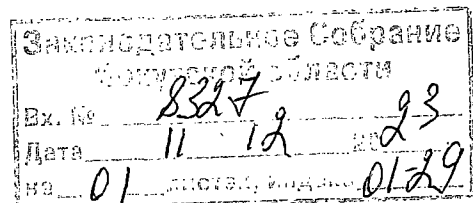 Законодательное Собрание
области
Вх. № 8327
Дата 11 12 2023
на 01 листах, индекс 01-29